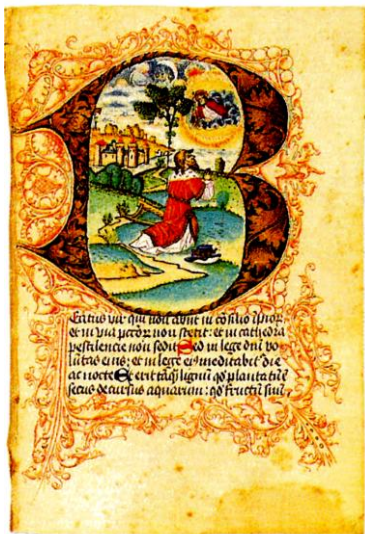 B
Eatus vir qui non abiit in cōsilio īpior̄
et in via pctōr̄ non stetit: et in cathedra
pestilencie non sedit Sed in lege dnī vo
lūtas eius: et in lege ei⁹ meditabit̄ die
ac nocte Et erit tāq̄ lignū qd̄ plantatū ē
secus decursus aquarum: qd̄ fructū suū